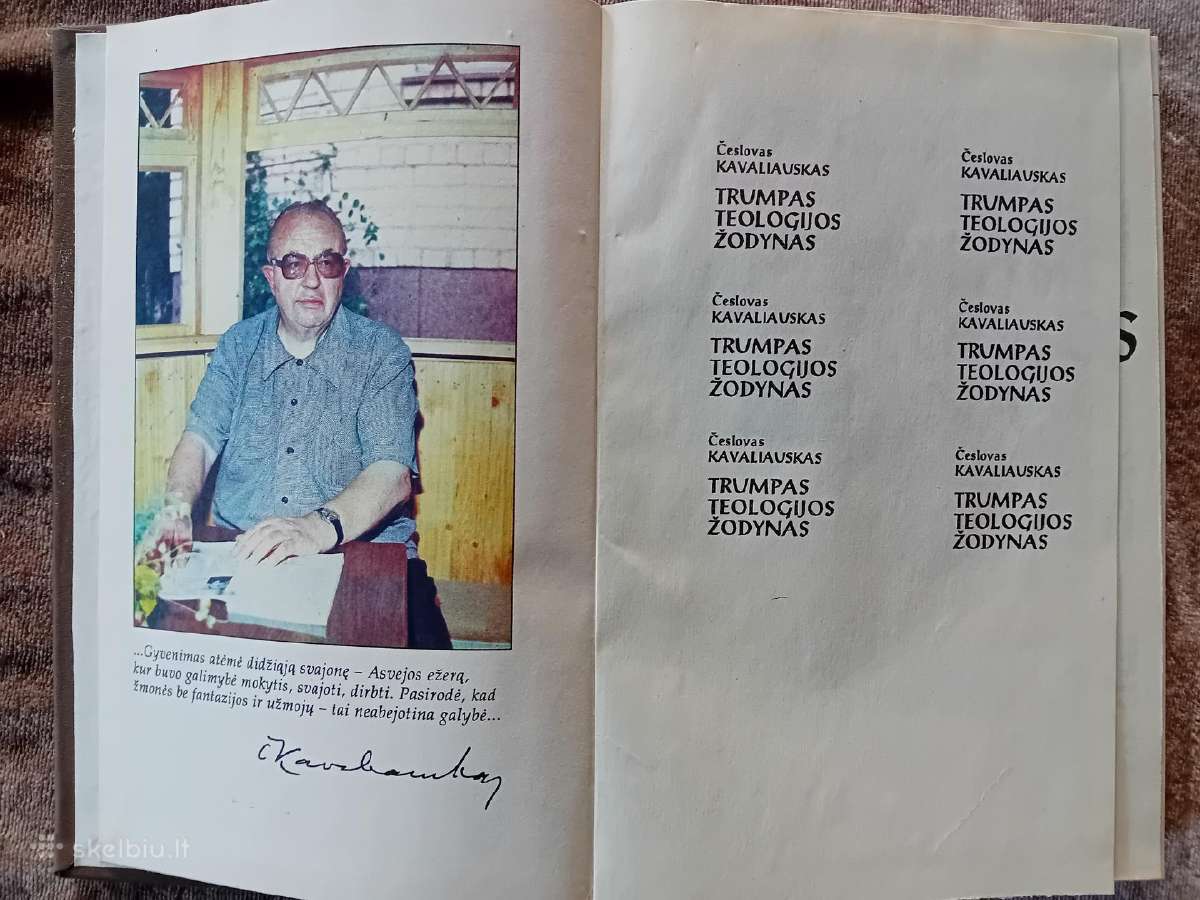 ...Gyvenimas atėmė didžiąją svajonę – Asvejos ežerą,
kur buvo galimybė mokytis, svajoti, dirbti. Pasirodė, kad
žmonės be fantazijos ir užmojų – tai neabejotina galybė...
ČKavaliauskas
skelbiu.lt
Česlovas
KAVALIAUSKAS
TRUMPAS
TEOLOGIJOS
ŽODYNAS
Česlovas
KAVALIAUSKAS
TRUMPAS
TEOLOGIJOS
ŽODYNAS
Česlovas
KAVALIAUSKAS
TRUMPAS
TEOLOGIJOS
ŽODYNAS
Česlovas
KAVALIAUSKAS
TRUMPAS
TEOLOGIJOS
ŽODYNAS
Česlovas
KAVALIAUSKAS
TRUMPAS
TEOLOGIJOS
ŽODYNAS
Česlovas
KAVALIAUSKAS
TRUMPAS
TEOLOGIJOS
ŽODYNAS
S